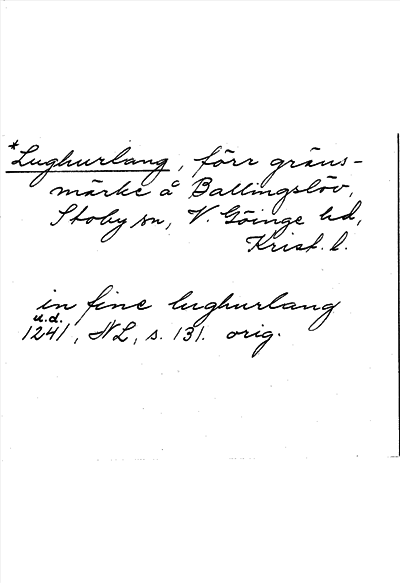 *Lughurlang, förr gräns-
märke å Ballingslöv,
Stoby sn, V. Göinge hd,
Krist. l.
in fine lughurlang
u.d.
1241, NL, s. 131. orig.